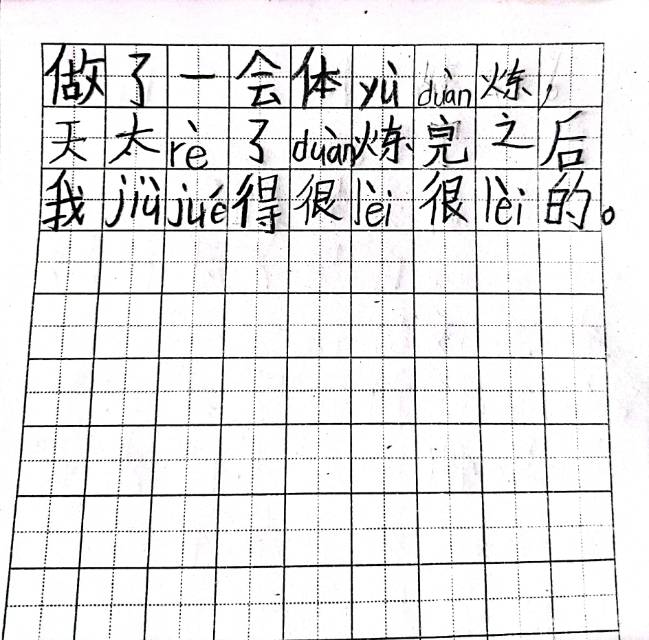 做了一会体yùduàn炼，
天太rè了duàn炼完之后
我jiùjué得很lèi很lèi的。